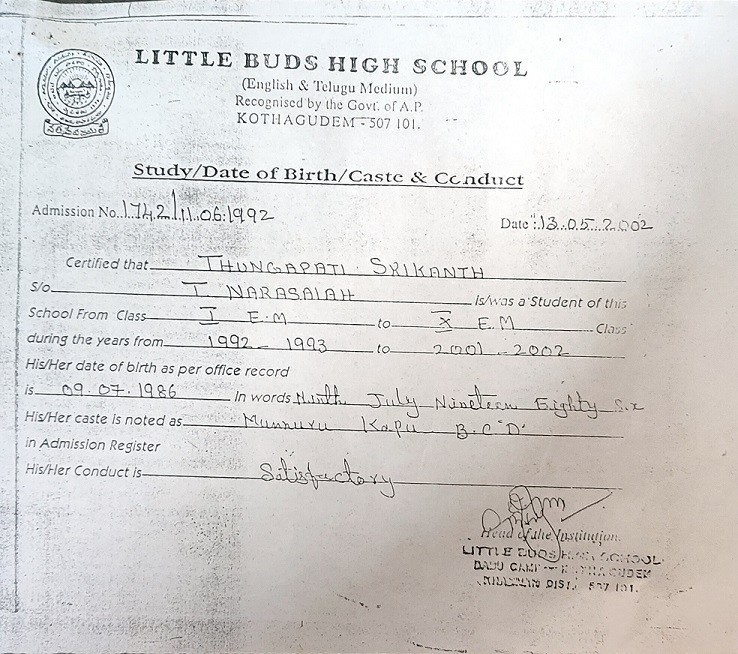 LITTLE BUDS HIGH SCHOOL
(English & Telugu Medium)
Recognised by the Govt. of A.P.
KOTHAGUDEM - 507 101.
Study/Date of Birth/Caste & Conduct
Admission No. 1742/11.06.1992 Date : 13.05.2002
Certified that THUNGAPATI SRIKANTH
S/o T NARASAIAH Is/was a Student of this
School From Class I E.M to X E.M Class
during the years from 1992 - 1993 to 2001 - 2002
His/Her date of birth as per office record
is 09.07.1986 In words Ninth July Nineteen Eighty Six
His/Her caste is noted as Munnuru Kapu B.C 'D'
in Admission Register
His/Her Conduct is Satisfactory
Head of the Institution
LITTLE BUDS HIGH SCHOOL
BABU CAMP KOTHAGUDEM
KHAMMAM DIST. 507 101.